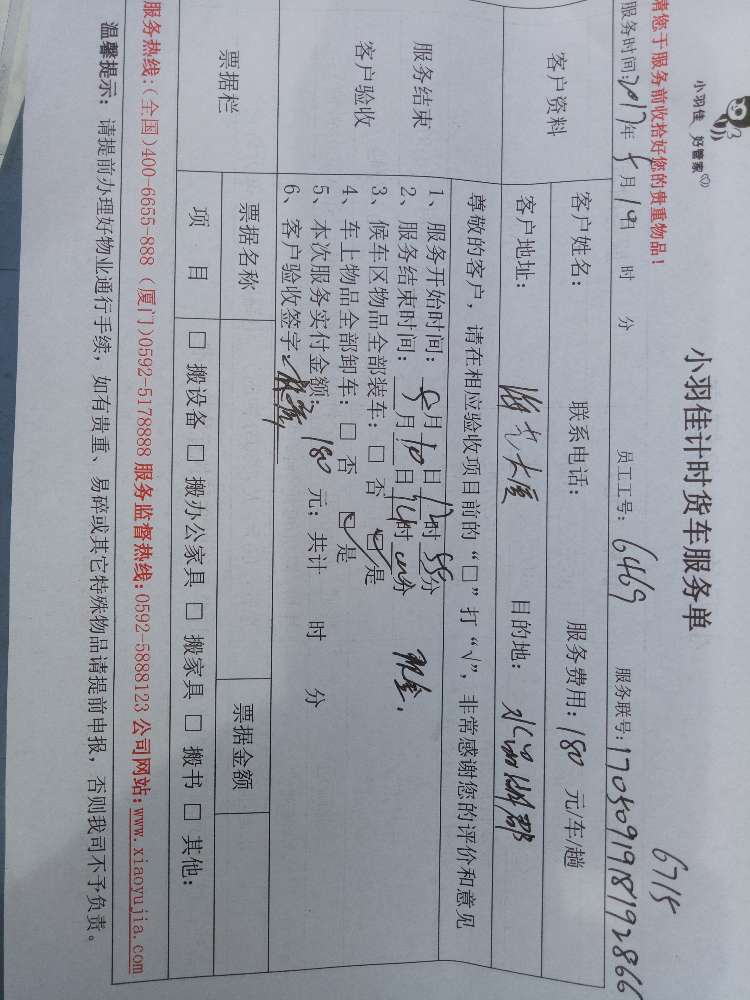 小羽佳 好管家
小羽佳计时货车服务单
6715
请您于服务前收拾好您的贵重物品！
服务时间:2017年5月19日 时 分 员工工号: 6469 服务联号:1705091918192866
客户资料 客户姓名: 联系电话: 服务费用: 180 元/车/趟
客户地址: 目的地: 水晶湖郡
服务结束
客户验收
尊敬的客户，请在相应验收项目前的“□”打“√”，非常感谢您的评价和意见
1、服务开始时间: 5月10日12时55分
2、服务结束时间: 月10日14时00分 现金.
3、候车区物品全部装车: □ 否 ☑ 是
4、车上物品全部卸车: □ 否 ☑ 是
5、本次服务实付金额: 180 元; 共计 时 分
6、客户验收签字:
票据栏 票据名称 票据金额
项 目 □ 搬设备 □ 搬办公家具 □ 搬家具 □ 搬书 □ 其他:
服务热线:(全国)400-6655-888 (厦门)0592-5178888 服务监督热线:0592-5888123 公司网站:www.xiaoyujia.com
温馨提示: 请提前办理好物业通行手续，如有贵重、易碎或其它特殊物品请提前申报，否则我司不予负责。